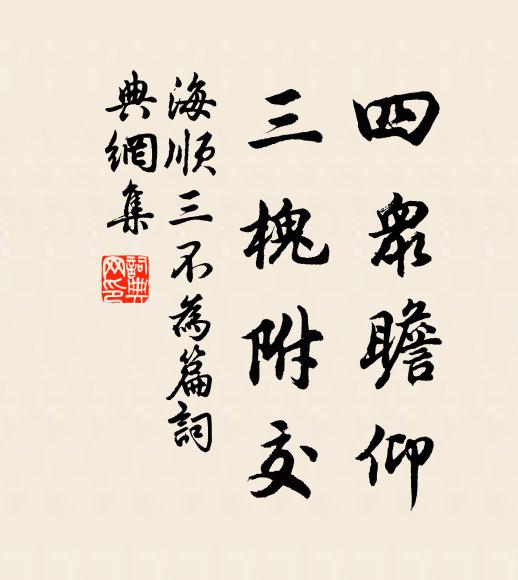 四眾瞻仰
三槐附交
海順三不為篇詞
典網集
詞典網印